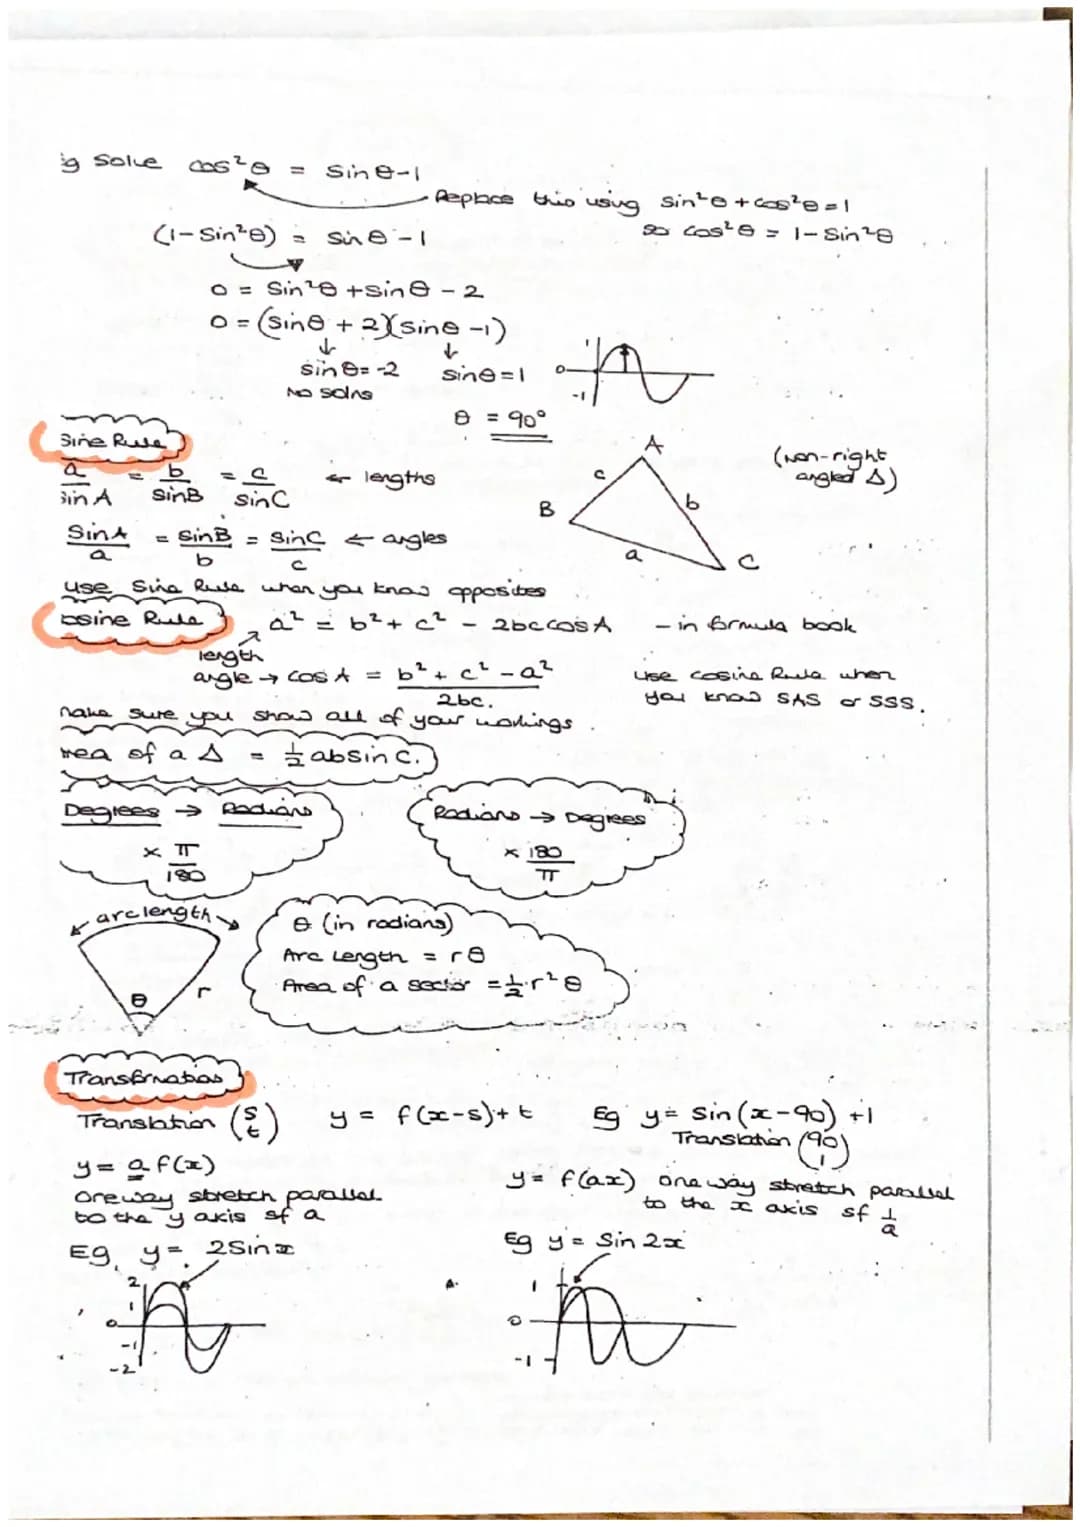 g Solve cos²θ = sinθ-1
Replace this using sin²θ + cos²θ = 1
so cos²θ = 1-sin²θ
(1-sin²θ) = sinθ-1
0 = sin²θ + sinθ - 2
0 = (sinθ + 2)(sinθ -1)
sinθ = -2 sinθ = 1
No solns
1
0
-1
θ = 90°
Sine Rule
a/sinA = b/sinB = c/sinC ← lengths
(non-right angled Δ)
A
c
b
B
a
C
sinA/a = sinB/b = sinC/c ← angles
use Sine Rule when you know opposites
osine Rule a² = b² + c² - 2bccosA - in formula book
length
angle → cosA = b² + c² - a² / 2bc.
use cosine Rule when
you know SAS or SSS.
make sure you show all of your workings.
rea of a Δ = ½absinC.
Degrees → Radians
× π/180
Radians → Degrees
× 180/π
arc length
θ
r
θ (in radians)
Arc Length = rθ
Area of a sector = ½r²θ
Transformations
Translation (s t) y = f(x-s)+t Eg y = sin(x-90) +1
Translation (90 1)
y = a f(x)
one way stretch parallel
to the y axis sf a
y = f(ax) one way stretch parallel
to the x axis sf 1/a
Eg. y = 2sinx
2
1
0
-1
-2
Eg y = sin2x
1
0
-1